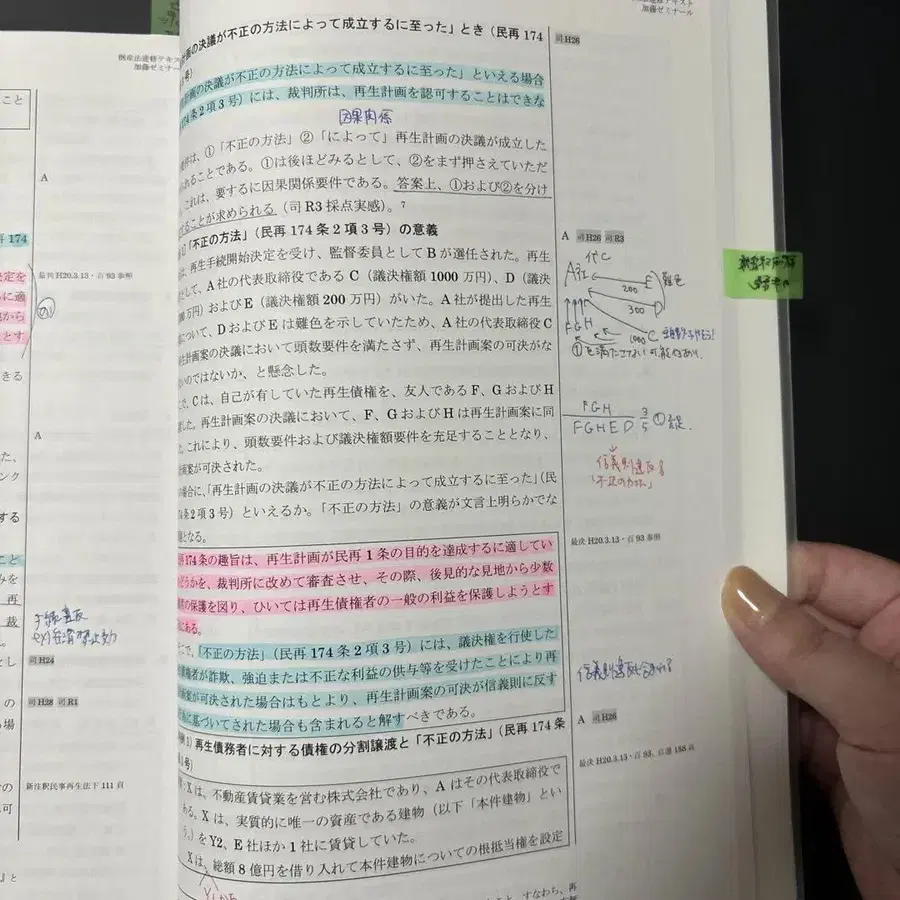 倒産法速修テキスト
加藤ゼミナール
こと
A
174
最判H20.3.13・百93参照
決定を
に適
から
とす
できる
A
た、
ンク
する
こと
みを
再
裁
し
司H24
の
場
司H28 司R1
新注釈民事再生法下111頁
の
可
』と
テキスト
加藤ゼミナール
計画の決議が不正の方法によって成立するに至った」とき(民再174
号)
司H26
計画の決議が不正の方法によって成立するに至った」といえる場合
174条2項3号)には、裁判所は、再生計画を認可することはできな
因果関係
要件は、①「不正の方法」②「によって」再生計画の決議が成立した
れることである。①は後ほどみるとして、②をまず押さえていただ
これは、要するに因果関係要件である。答案上、①および②を分け
ることが求められる(司R3採点実感)。7
「不正の方法」(民再174条2項3号)の意義
A 司H26 司R3
は、再生手続開始決定を受け、監督委員としてBが選任された。再生
として、A社の代表取締役であるC(議決権額1000万円)、D(議決
万円)およびE(議決権額200万円)がいた。A社が提出した再生
について、DおよびEは難色を示していたため、A社の代表取締役C
生計画案の決議において頭数要件を満たさず、再生計画案の可決がな
いのではないか、と懸念した。
で、Cは、自己が有していた再生債権を、友人であるF、GおよびH
した。再生計画案の決議において、F、GおよびHは再生計画案に同
た。これにより、頭数要件および議決権額要件を充足することとなり、
計画案が可決された。
の場合に、「再生計画の決議が不正の方法によって成立するに至った」(民
74条2項3号)といえるか。「不正の方法」の意義が文言上明らかでな
題となる。
代C
A社
200
E
難色
300
D
1000
C
F G H
FGH
FGHED
3
5
信義則違反も
「不正の方法」
最決H20.3.13・百93事例
174条の趣旨は、再生計画が民再1条の目的を達成するに適してい
どうかを、裁判所に改めて審査させ、その際、後見的な見地から少数
の保護を図り、ひいては再生債権者の一般の利益を保護しようとす
にある。
で、「不正の方法」(民再174条2項3号)には、議決権を行使した
権者が詐欺、強迫または不正な利益の供与等を受けたことにより再
画案が可決された場合はもとより、再生計画案の可決が信義則に反す
に基づいてされた場合も含まれると解すべきである。
信義則違反も含まれる
1)再生債務者に対する債権の分割譲渡と「不正の方法」(民再174条
号)
A 司H26
最決H20.3.13・百93、百選188頁
:Xは、不動産賃貸業を営む株式会社であり、Aはその代表取締役で
ある。Xは、実質的に唯一の資産である建物(以下「本件建物」とい
う。)をY2、E社ほか1社に賃貸していた。
Xは、総額8億円を借り入れて本件建物についての根抵当権を設定
すなわち、再